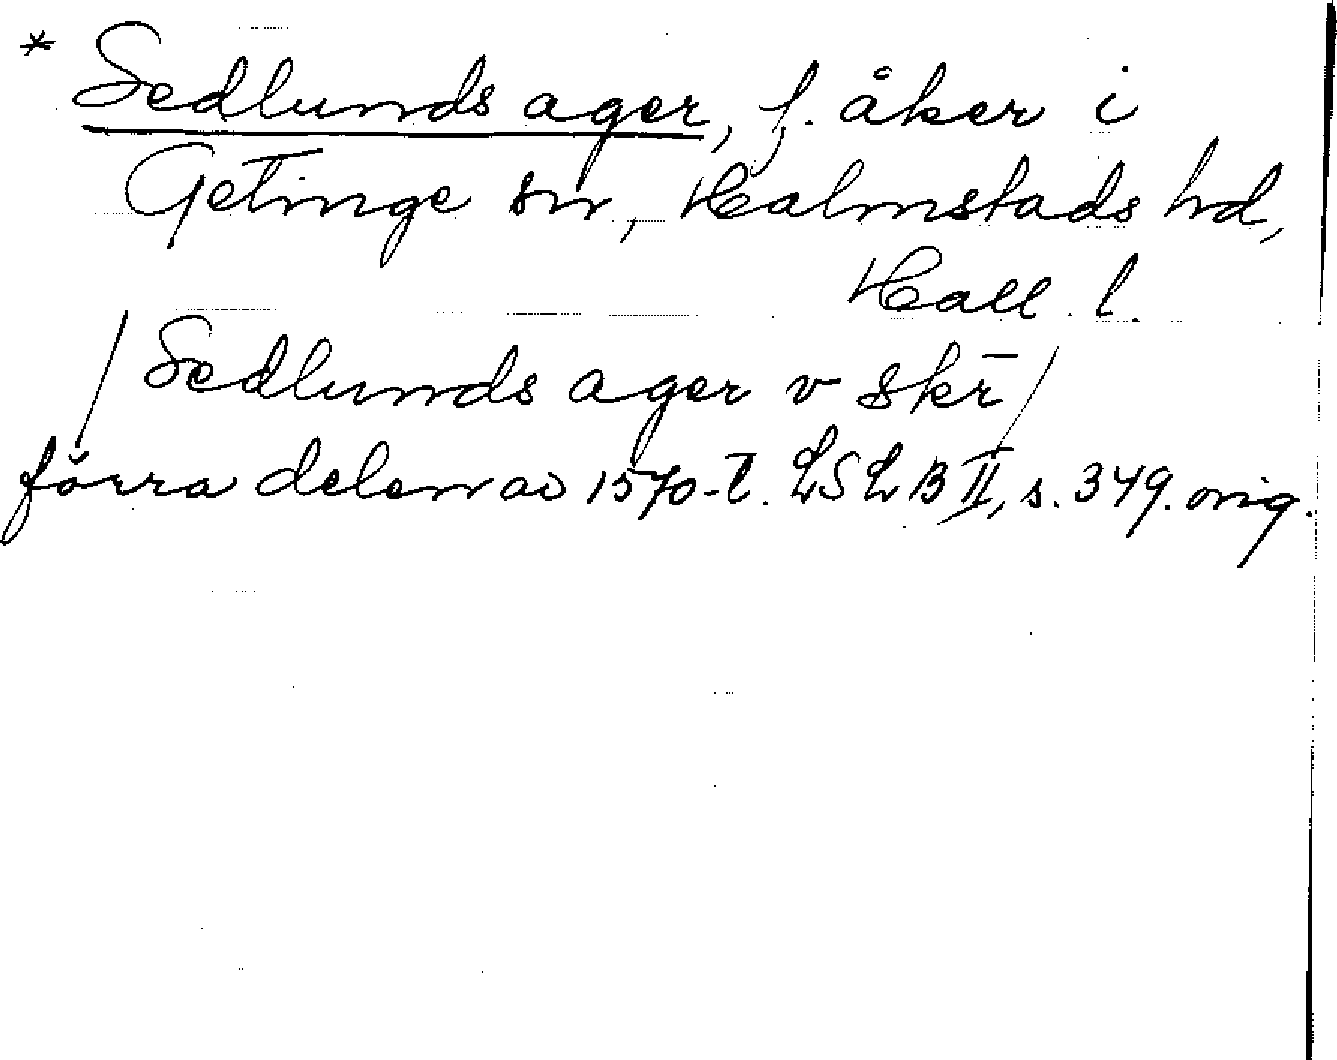 * Sedlunds ager, f. åker i
Getinge sn, Halmstads hd,
Hall. l.
/Sedlunds ager v skr̄/
förra delen av 1570-t. LSLB II, s. 349. orig.